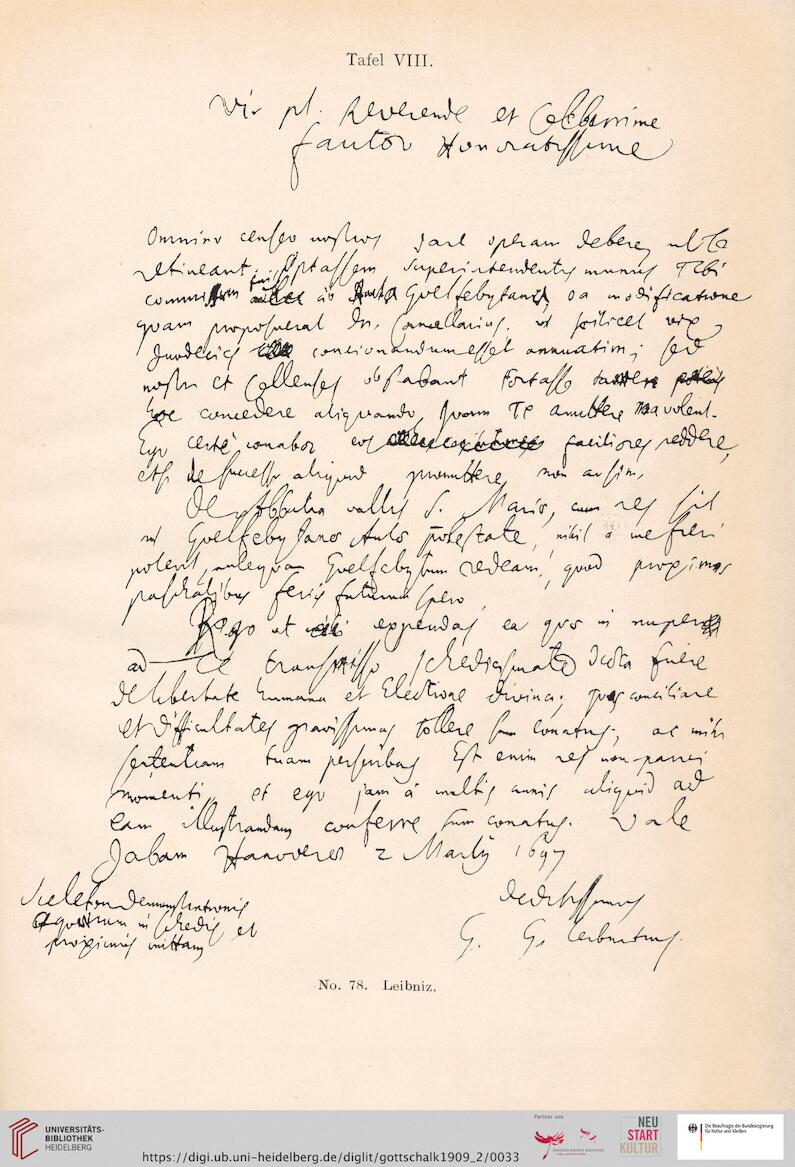 Tafel VIII.
Vir pl. Reverende et Celeberrime
fautor Honoratissime
Omnino censeo nostros dare operam debere, ut Te
retineant. fortassem superintendentis munus Tibi
commissum fuisset ab Aula Guelfebytana, ea modificatione
quam proposuerat Dn. Cancellarius. ut scilicet vix
duodecies concionandum esset annuatim; sed
nostri et Cellenses obstabant fortasse
hoc concedere aliquando, quam Te amittere malent.
Ego certe conabor eos faciliores reddere,
etsi de successu aliquid promittere non ausim.
De Abbatia vallis S. Mariae, cum res sit
in Guelfebytanae Aulae potestate, nihil a me fieri
potest, antequam Guelfebytum redeam, quod proximis
paschalibus feriis futurum spero,
Rogo ut expendas ea quae in nuper
ad Te transmisso schediasmate dicta fuere
de libertate humana et Electione divina; quas conciliare
et difficultates gravissimas tollere sum conatus; ac mihi
sententiam tuam perscribas Est enim res non parvi
momenti, et ego jam a multis annis aliquid ad
eam illustrandam conferre sum conatus. Vale
Dabam Hanoverae 2 Martij 1697
deditissimus
G. G. Leibnitius.
Sceleton demonstrationis
in schedis et
proximis mittam
No. 78. Leibniz.
UNIVERSITÄTS-
BIBLIOTHEK
HEIDELBERG
https://digi.ub.uni-heidelberg.de/diglit/gottschalk1909_2/0033
Partner von
DEUTSCHE DIGITALE BIBLIOTHEK
NEU
START
KULTUR
Die Beauftragte der Bundesregierung
für Kultur und Medien